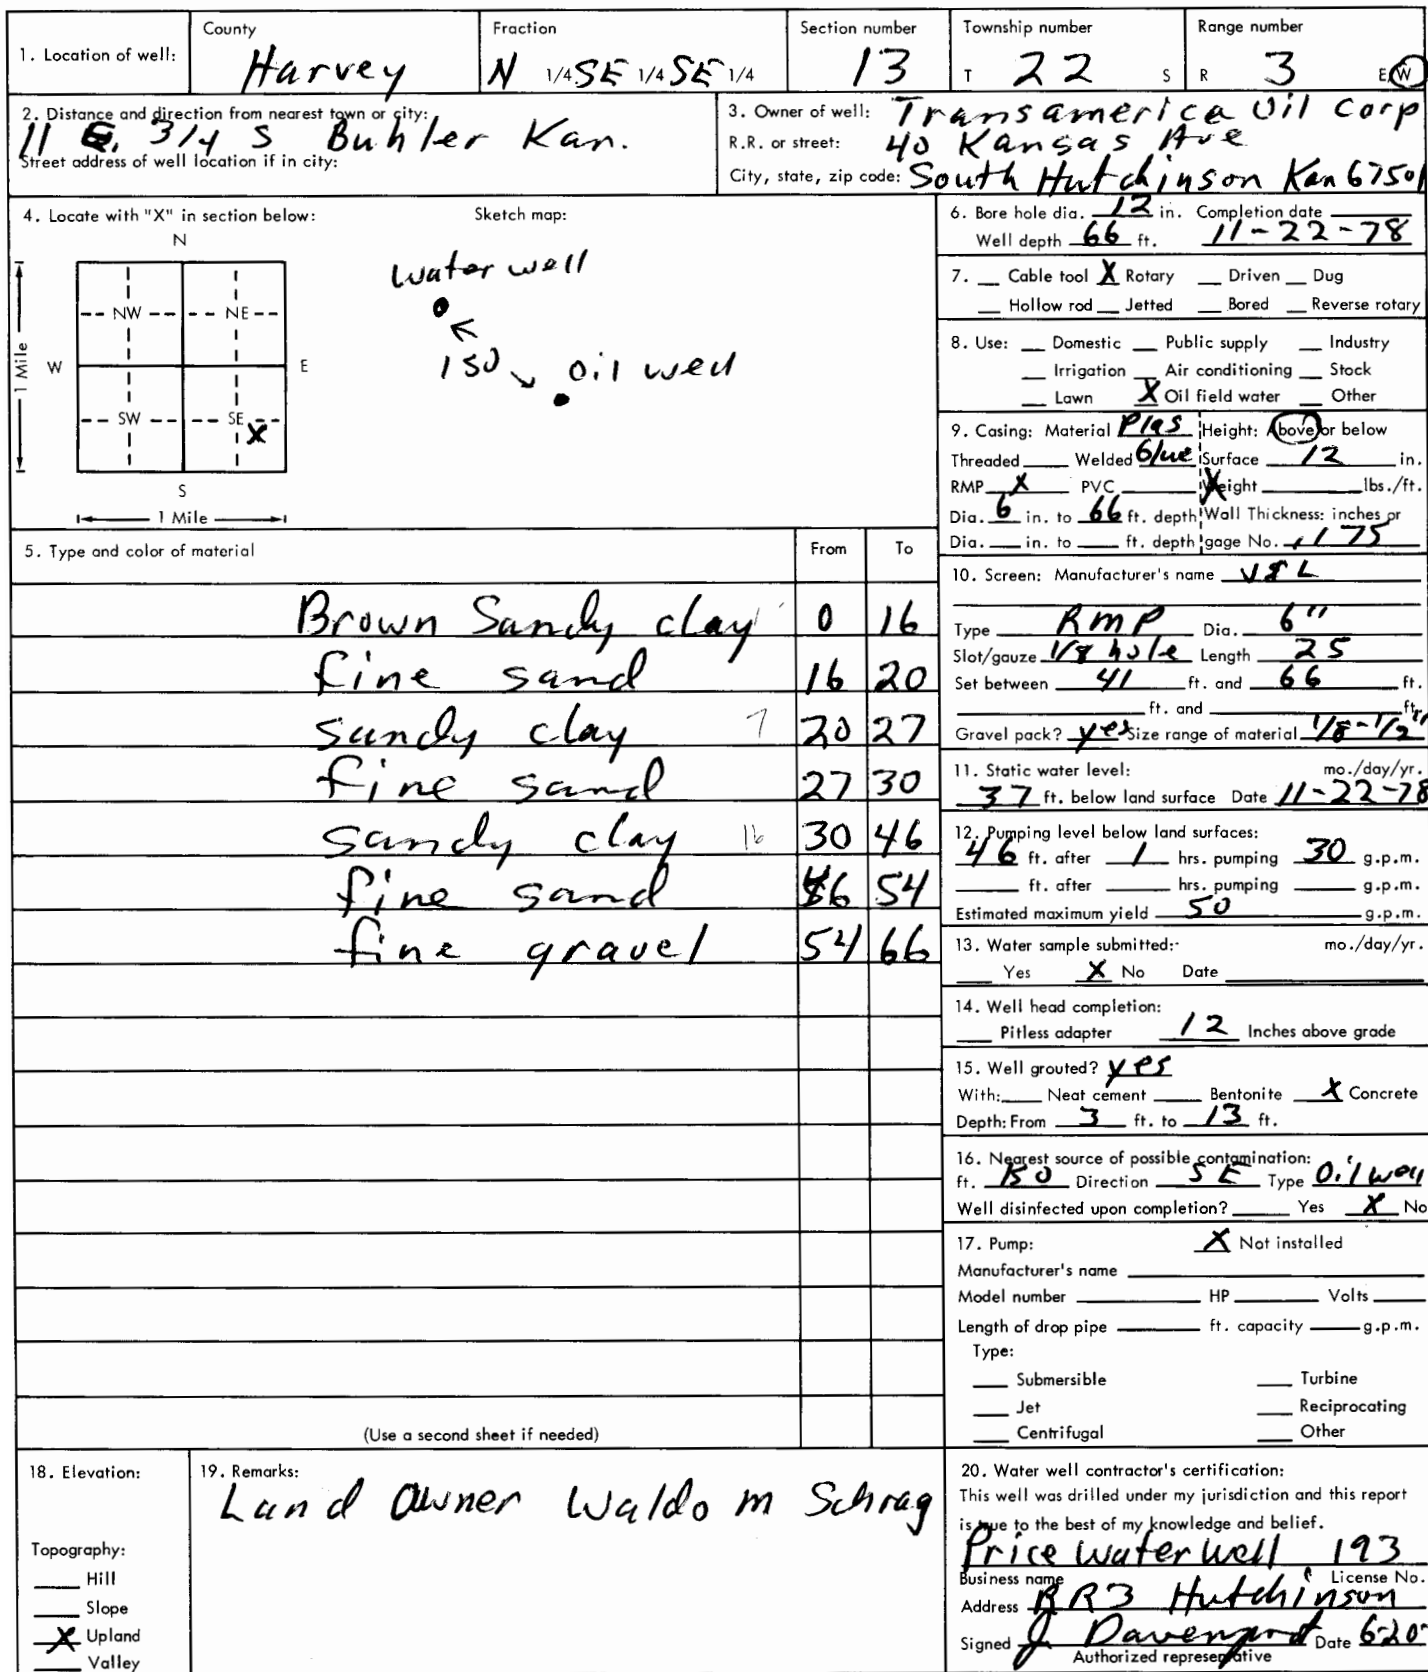 County Fraction Section number Township number Range number
1. Location of well: Harvey N 1/4 SE 1/4 SE 1/4 13 T 22 S R 3 E/W
2. Distance and direction from nearest town or city:
11 E. 3/4 S Buhler Kan.
Street address of well location if in city:
3. Owner of well: Transamerica Oil Corp
R.R. or street: 40 Kansas Ave
City, state, zip code: South Hutchinson Kan 67501
4. Locate with "X" in section below:
N
NW NE
W E
SW SE X
S
1 Mile
1 Mile
Sketch map:
water well
150
oil well
5. Type and color of material From To
Brown Sandy clay 0 16
fine sand 16 20
sandy clay 7 20 27
fine sand 27 30
sandy clay 16 30 46
fine sand 46 54
fine gravel 54 66
(Use a second sheet if needed)
6. Bore hole dia. 12 in. Completion date
Well depth 66 ft. 11-22-78
7. __ Cable tool X Rotary __ Driven __ Dug
__ Hollow rod __ Jetted __ Bored __ Reverse rotary
8. Use: __ Domestic __ Public supply __ Industry
__ Irrigation __ Air conditioning __ Stock
__ Lawn X Oil field water __ Other
9. Casing: Material Plas Height: Above or below
Threaded ___ Welded Glue Surface 12 in.
RMP X PVC ___ Weight ___ lbs./ft.
Dia. 6 in. to 66 ft. depth Wall Thickness: inches or
Dia. ___ in. to ___ ft. depth gage No. .175
10. Screen: Manufacturer's name V&L
Type RMP Dia. 6"
Slot/gauze 1/8 hole Length 25
Set between 41 ft. and 66 ft.
___ ft. and ___ ft.
Gravel pack? yes Size range of material 1/8-1/2"
11. Static water level: mo./day/yr.
37 ft. below land surface Date 11-22-78
12. Pumping level below land surfaces:
46 ft. after 1 hrs. pumping 30 g.p.m.
___ ft. after ___ hrs. pumping ___ g.p.m.
Estimated maximum yield 50 g.p.m.
13. Water sample submitted: mo./day/yr.
___ Yes X No Date ___
14. Well head completion:
___ Pitless adapter 12 Inches above grade
15. Well grouted? yes
With: ___ Neat cement ___ Bentonite X Concrete
Depth: From 3 ft. to 13 ft.
16. Nearest source of possible contamination:
ft. 150 Direction SE Type Oil well
Well disinfected upon completion? ___ Yes X No
17. Pump: X Not installed
Manufacturer's name ___
Model number ___ HP ___ Volts ___
Length of drop pipe ___ ft. capacity ___ g.p.m.
Type:
___ Submersible ___ Turbine
___ Jet ___ Reciprocating
___ Centrifugal ___ Other
18. Elevation:
Topography:
___ Hill
___ Slope
X Upland
___ Valley
19. Remarks:
Land Owner Waldo M Schrag
20. Water well contractor's certification:
This well was drilled under my jurisdiction and this report
is true to the best of my knowledge and belief.
Price Water Well 193
Business name License No.
Address RR3 Hutchinson
Signed J Davenport Date 6-20-
Authorized representative